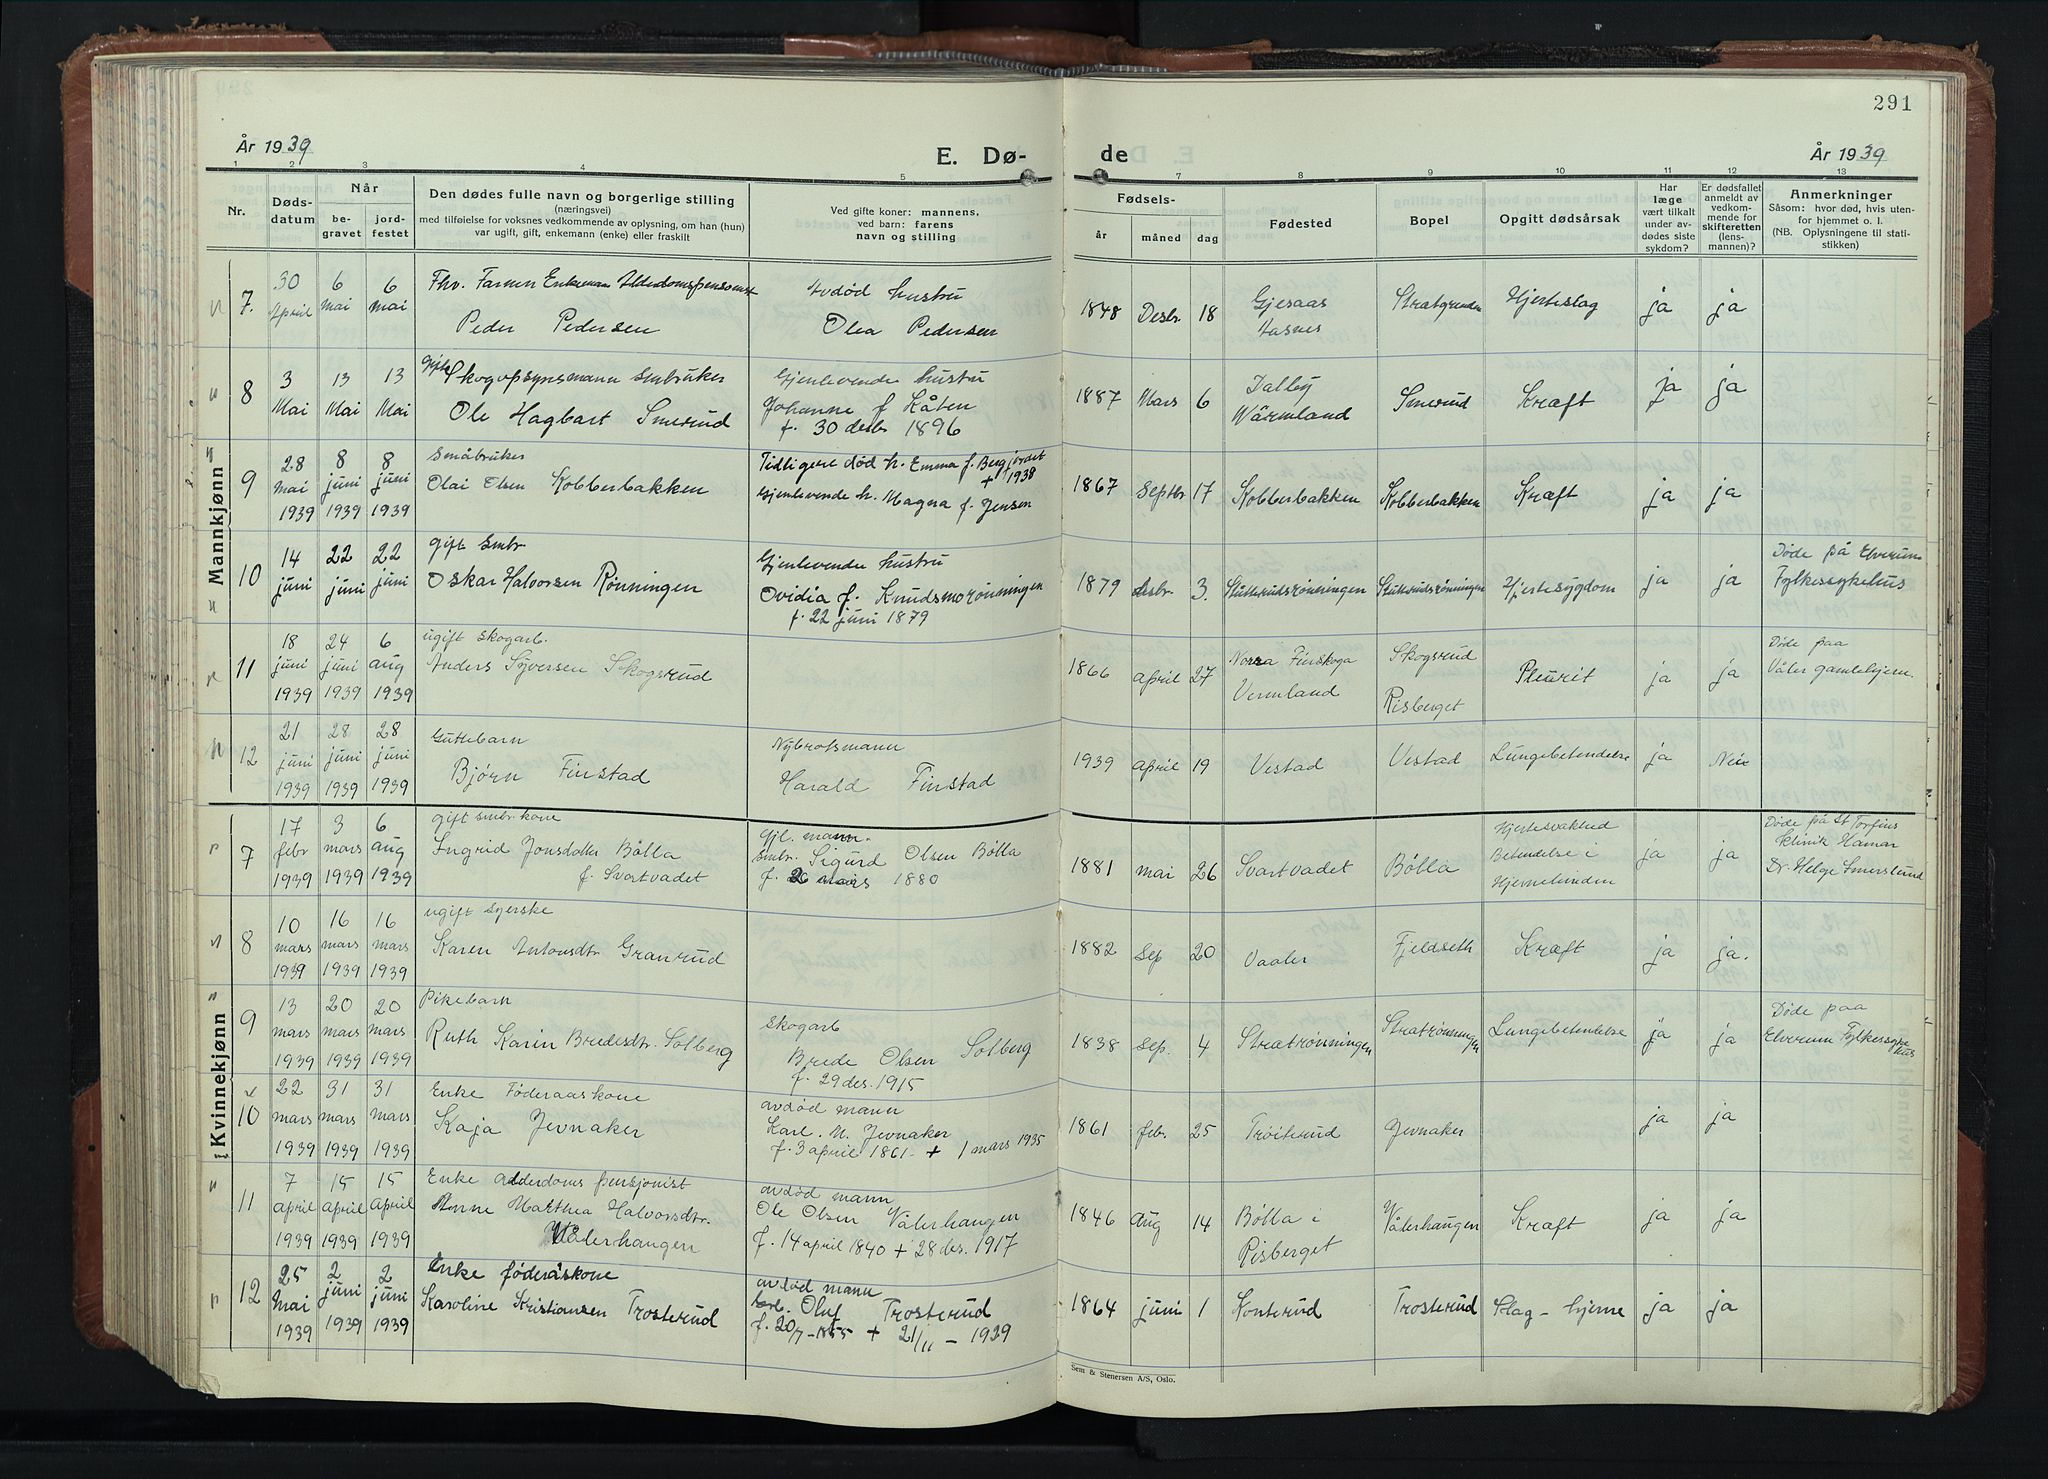 291
År 1939
E. Dø-
de
År 1939
1 2 3 4 5 7 8 9 10 11 12 13
Nr.
Døds-
datum
Når
be-
gravet
jord-
festet
Den dødes fulle navn og borgerlige stilling
(næringsvei)
med tilføielse for voksnes vedkommende av oplysning, om han (hun)
var ugift, gift, enkemann (enke) eller fraskilt
Ved gifte koner: mannens,
ved barn: farens
navn og stilling
Fødsels-
år måned dag
Fødested
Bopel
Opgitt dødsårsak
Har
læge
vært tilkalt
under av-
dødes siste
sykdom?
Er dødsfallet
anmeldt av
vedkom-
mende for
skifteretten
(lens-
mannen)?
Anmerkninger
Såsom: hvor død, hvis uten-
for hjemmet o. l.
(NB. Oplysningene til stati-
stikken)
Mannkjønn
7. 30 April 6 Mai 6 Mai
Fhv. Farmer Enkeman Alderdomspensionist
Peder Pedersen
Avdød hustru
Olea Pedersen
1848 Desbr 18
Gjesaas
Aasnes
Stratgrenden
Hjerteslag
ja ja
8 3 Mai 13 Mai 13 Mai
Gift Skogopsynsmann Smbruker
Ole Hagbart Smerud
Gjenlevende hustru
Johanne f Kåten
f. 30 desbr 1896
1887 Mars 6
Dalby
Wärmland
Smerud
Kræft
ja ja
9 28 Mai 1939 8 juni 1939 8 juni 1939
Småbruker
Olai Olsen Kobberbakken
Tidligere død h. Emma f. Bergjordet
+ 1938
Gjenlevende h. Magna f. Jensen
1867 Septbr 17
Kobberbakken
Kobberbakken
Kræft
ja ja
10 14 juni 22 juni 22 juni
gift Smbr
Oskar Halvorsen Rønningen
Gjenlevende hustru
Ovidia f. Knudsmorønningen
f. 22 juni 1879
1879 desbr. 3.
Slutterudsrønningen
Slutterudsrønningen
Hjertesygdom
ja ja
Døde på Elverum
Fylkessykehus
11 18 juni 1939 24 juni 1939 6 aug 1939
ugift skogarb.
Anders Syversen Skogsrud
1866 april 27
Norra Finskoga
Vermland
Skogsrud
Risberget
Pleurit
ja ja
Døde paa
Våler gamlehjem.
12 21 juni 1939 28 juni 1939 28 juni 1939
Guttebarn
Bjørn Finstad
Nybrotsmann
Harald Finstad
1939 april 19
Vestad
Vestad
Lungebetendelse
ja Nei
Kvinnekjønn
7 17 febr 1939 3 mars 1939 6 aug 1939
gift smbr. kone
Ingrid Jonsdatter Bölla
f. Svartvadet
Gjl. mann.
Smbr. Sigurd Olsen Bölla
f. 26 mars 1880
1881 mai 26
Svartvadet
Bölla
Hjertesvakhed
Betendelse i
Hjernehinden
ja ja
Døde på St Torfins
klinik Hamar
Dr. Helge Smerslund
8 10 mars 1939 16 mars 1939 16 mars 1939
ugift syerske
Karen Antonsdtr Granrud
1882 Sep 20
Vaaler
Fjeldseth
Kræft
ja ja.
9 13 mars 1939 20 mars 1939 20 mars 1939
Pikebarn
Ruth Karin Bredesdtr. Solberg
Skogarb
Brede Olsen Solberg
f. 29 des. 1915
1838 Sep. 4
Stratrønningen
Stratrønningen
Lungebetendelse
ja ja
Døde paa
Elverum Fylkessyke
hus
10 22 mars 1939 31 mars 1939 31 mars 1939
Enke Föderaaskone
Kaja Jevnaker
avdød mann
Karl. M. Jevnaker
f. 3 april 1861 - + 1 mars 1935
1861 feb. 25
Tröiterud
Jevnaker
ja ja
11 7 april 1939 15 april 1939 15 april 1939
Enke alderdoms pensjonist
Anne Marthea Halvorsdtr.
Vålerhaugen
avdød mann
Ole Olsen Vålerhaugen
f. 14 april 1840 + 28 des. 1917
1846 Aug 14
Bölla i
Risberget
Vålerhaugen
Kræft
ja ja
12 25 Mai 1939 2 juni 1939 2 juni 1939
Enke föderåskone
Karoline Kristiansen Trosterud
avdød mann
Oluf Trosterud
f. 20/7 - 1855 + 21/11 - 1929
1864 juni 1
Konterud
Trosterud
Slag - hjerne
ja ja
Sem & Stenersen A/S, Oslo.